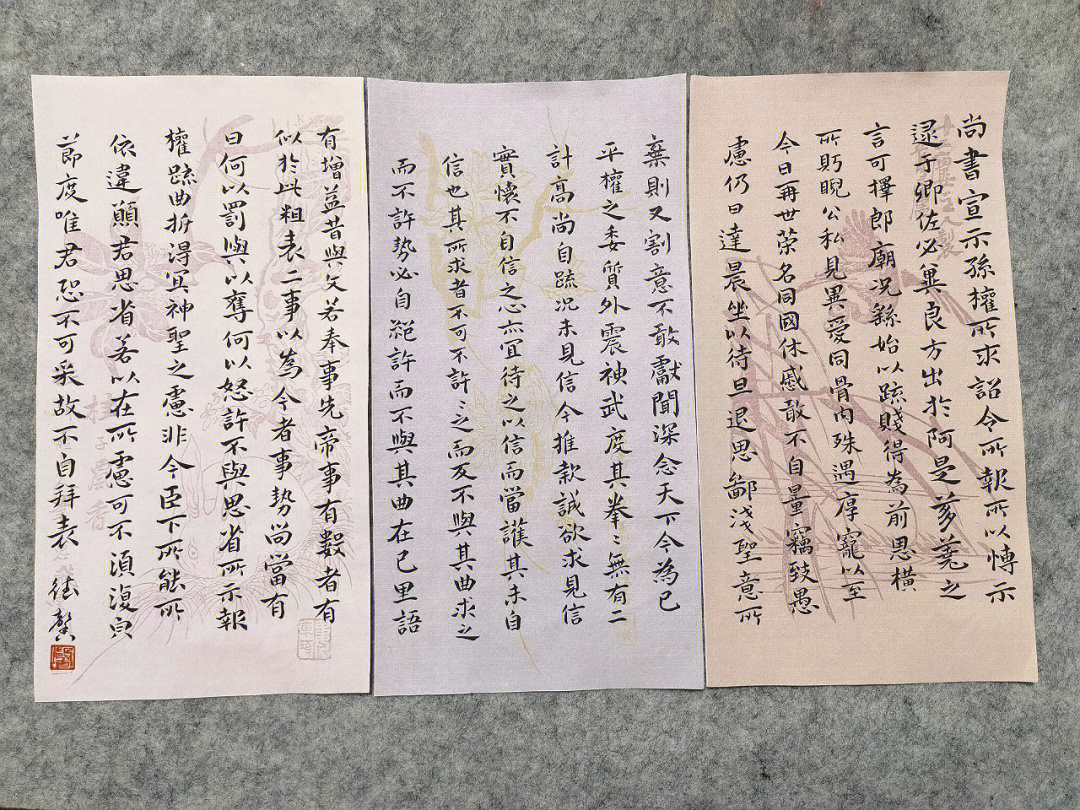 尚書宣示孫權所求詔令所報所以博示
逮于卿佐必冀良方出於阿是芻蕘之
言可擇郎廟况繇始以疏賤得為前恩橫
所盻睨公私見異愛同骨肉殊遇厚寵以至
今日再世荣名同國休慼敢不自量竊致愚
慮仍日達晨坐以待旦退思鄙淺聖意所
棄則又割意不敢獻聞深念天下今為已
平權之委質外震神武度其拳〻無有二
計高尚自疏况未見信今推款誠欲求見信
實懷不自信之心亦宜待之以信而當護其未自
信也其所求者不可不許〻之而反不與其曲求之
而不許勢必自絕許而不與其曲在己里語
曰何以罰與以奪何以怒許不與思省所示報
權疏曲折得宜神聖之慮非今臣下所能所
有增益昔與文若奉事先帝事有數者有
似於此粗表二事以為今者事勢尚當有
依違願君思省若以在所慮可不須復㒵
節度唯君恐不可采故不自拜表